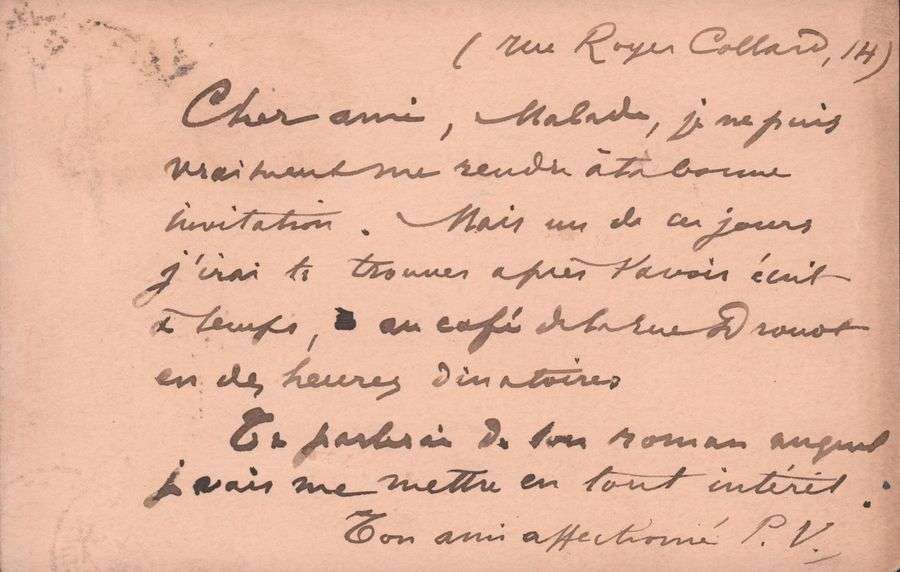 ( rue Royer Collard, 14)
Cher ami, Malade, je ne puis
vraiment me rendre à ta bonne
invitation. Mais un de ces jours
j'irai te trouver après t'avoir écrit
à temps, au café de la rue Drouot
en des heures dinatoires
Te parlerai de ton roman auquel
je vais me mettre en tout intérêt.
Ton ami affectionné P. V.